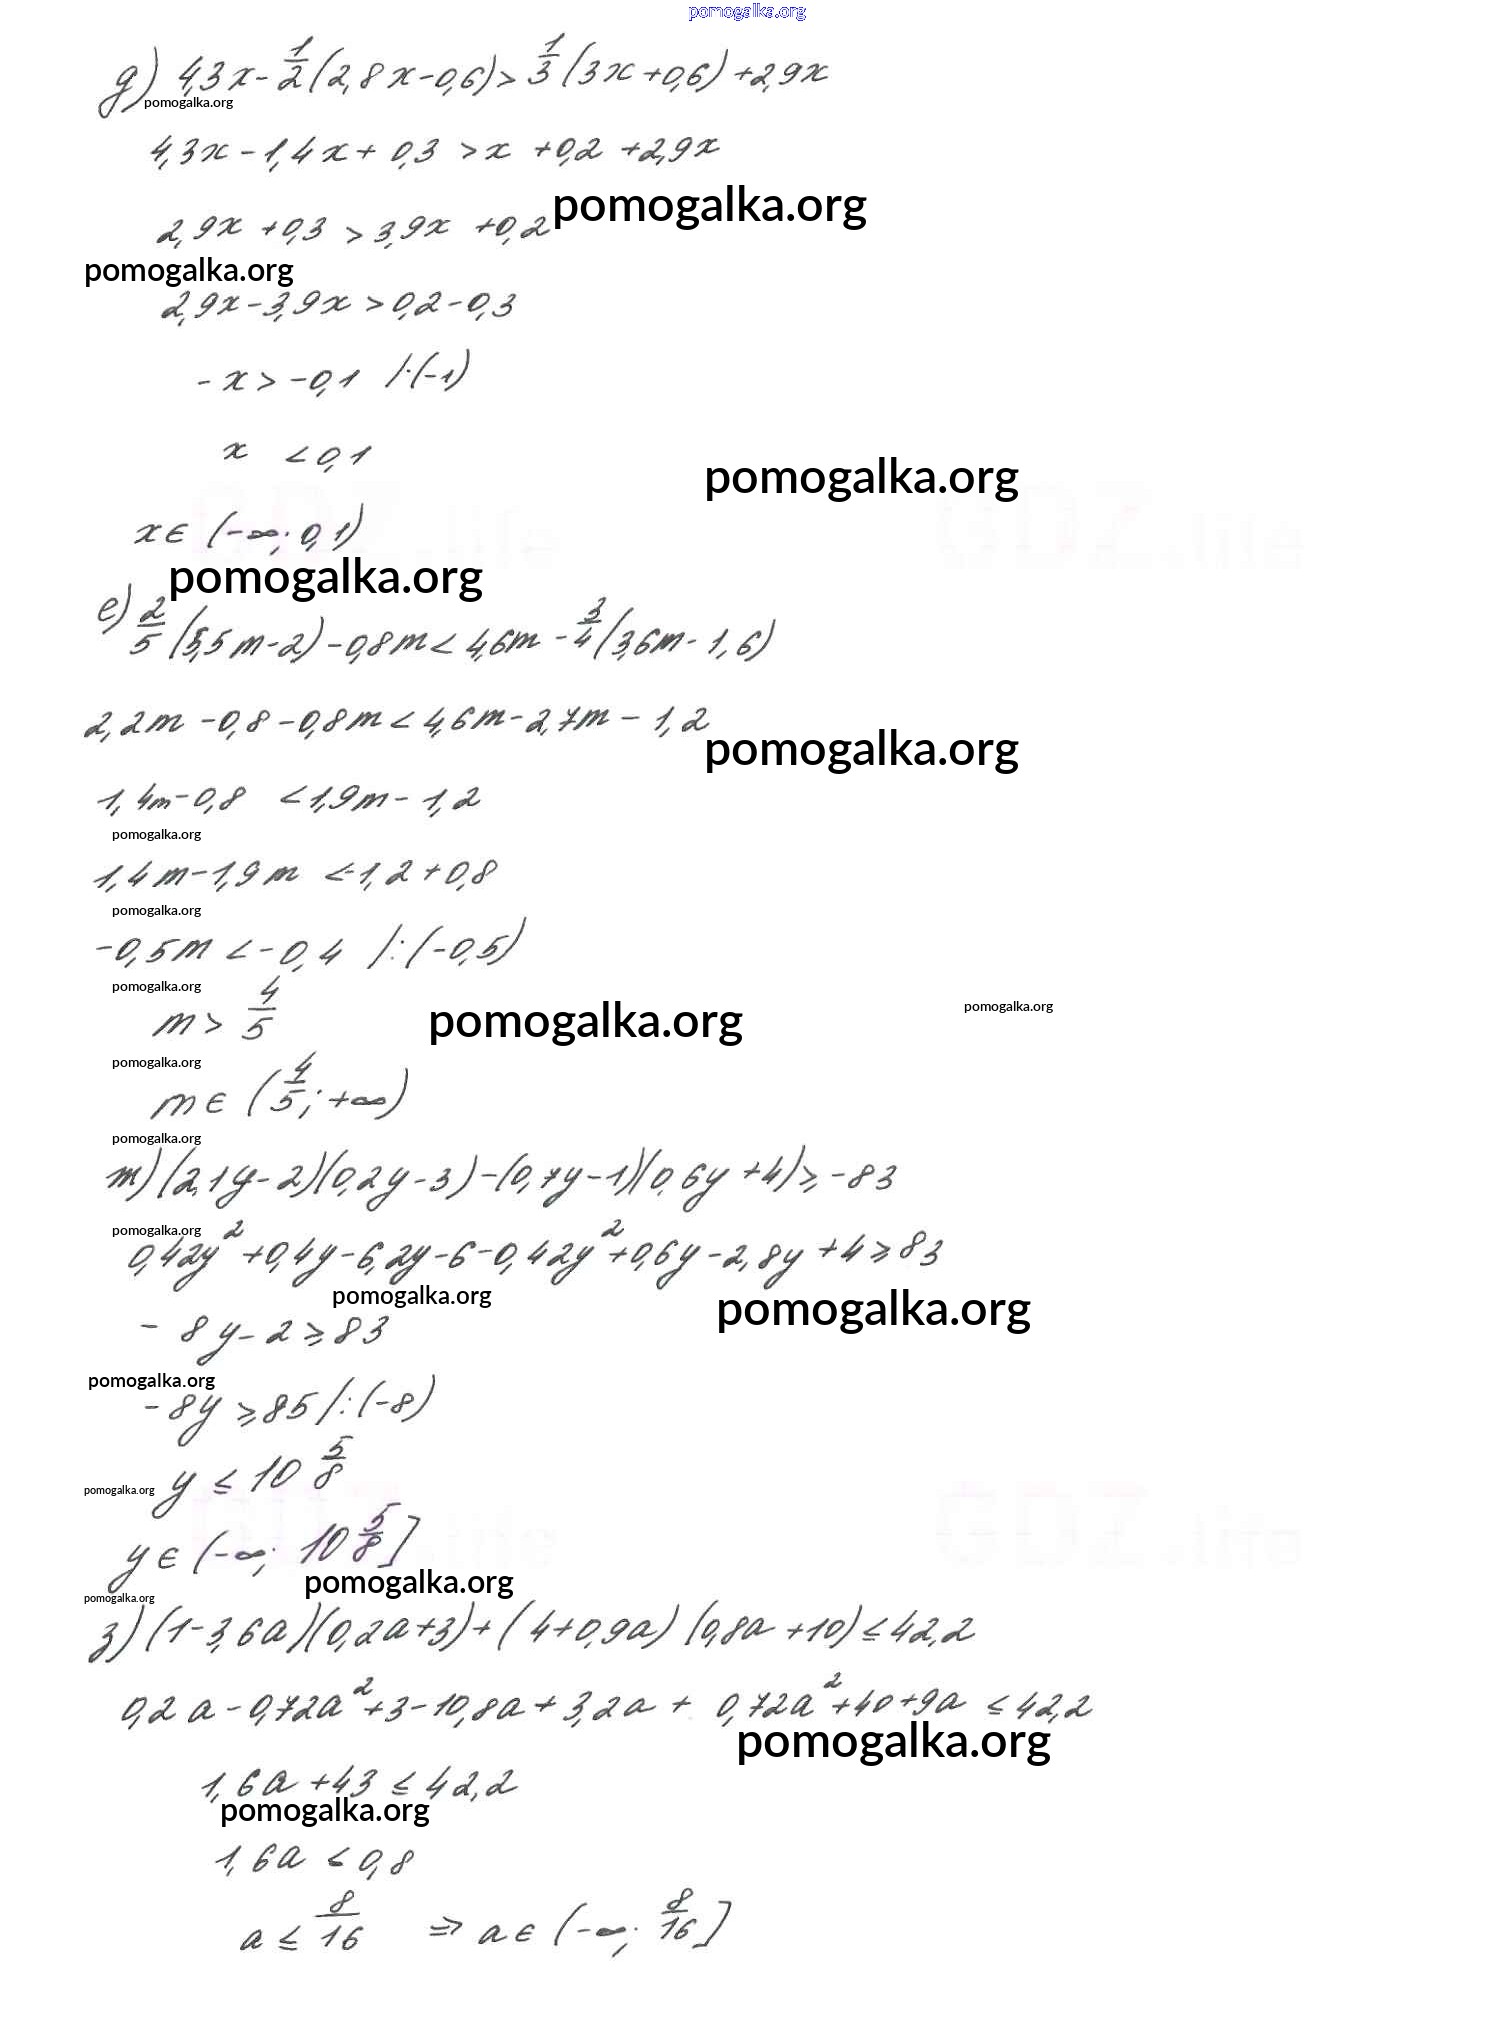 pomogalka.org
д) 4,3x - 1/2 (2,8x - 0,6) > 1/3 (3x + 0,6) + 2,9x
pomogalka.org
4,3x - 1,4x + 0,3 > x + 0,2 + 2,9x
pomogalka.org
2,9x + 0,3 > 3,9x + 0,2
pomogalka.org
2,9x - 3,9x > 0,2 - 0,3
-x > -0,1 /·(-1)
x < 0,1
pomogalka.org
x ∈ (-∞; 0,1)
pomogalka.org
е) 2/5 (5,5m - 2) - 0,8m < 4,6m - 3/4 (3,6m - 1,6)
2,2m - 0,8 - 0,8m < 4,6m - 2,7m - 1,2
pomogalka.org
1,4m - 0,8 < 1,9m - 1,2
pomogalka.org
1,4m - 1,9m < -1,2 + 0,8
pomogalka.org
-0,5m < -0,4 /:(-0,5)
pomogalka.org
m > 4/5
pomogalka.org
pomogalka.org
pomogalka.org
m ∈ (4/5; +∞)
pomogalka.org
m) (2,1y - 2)(0,2y - 3) - (0,7y - 1)(0,6y + 4) ≥ -83
pomogalka.org
0,42y² + 0,4y - 6,2y - 6 - 0,42y² + 0,6y - 2,8y + 4 ≥ 83
pomogalka.org
pomogalka.org
- 8y - 2 ≥ 83
pomogalka.org
-8y ≥ 85 /:(-8)
y ≤ 10 5/8
pomogalka.org
y ∈ (-∞; 10 5/8]
pomogalka.org
pomogalka.org
з) (1 - 3,6a)(0,2a + 3) + (4 + 0,9a) (0,8a + 10) ≤ 42,2
0,2a - 0,72a² + 3 - 10,8a + 3,2a + 0,72a² + 40 + 9a ≤ 42,2
pomogalka.org
1,6a + 43 ≤ 42,2
pomogalka.org
1,6a ≤ 0,8
a ≤ 8/16 ⇒ a ∈ (-∞; 8/16]